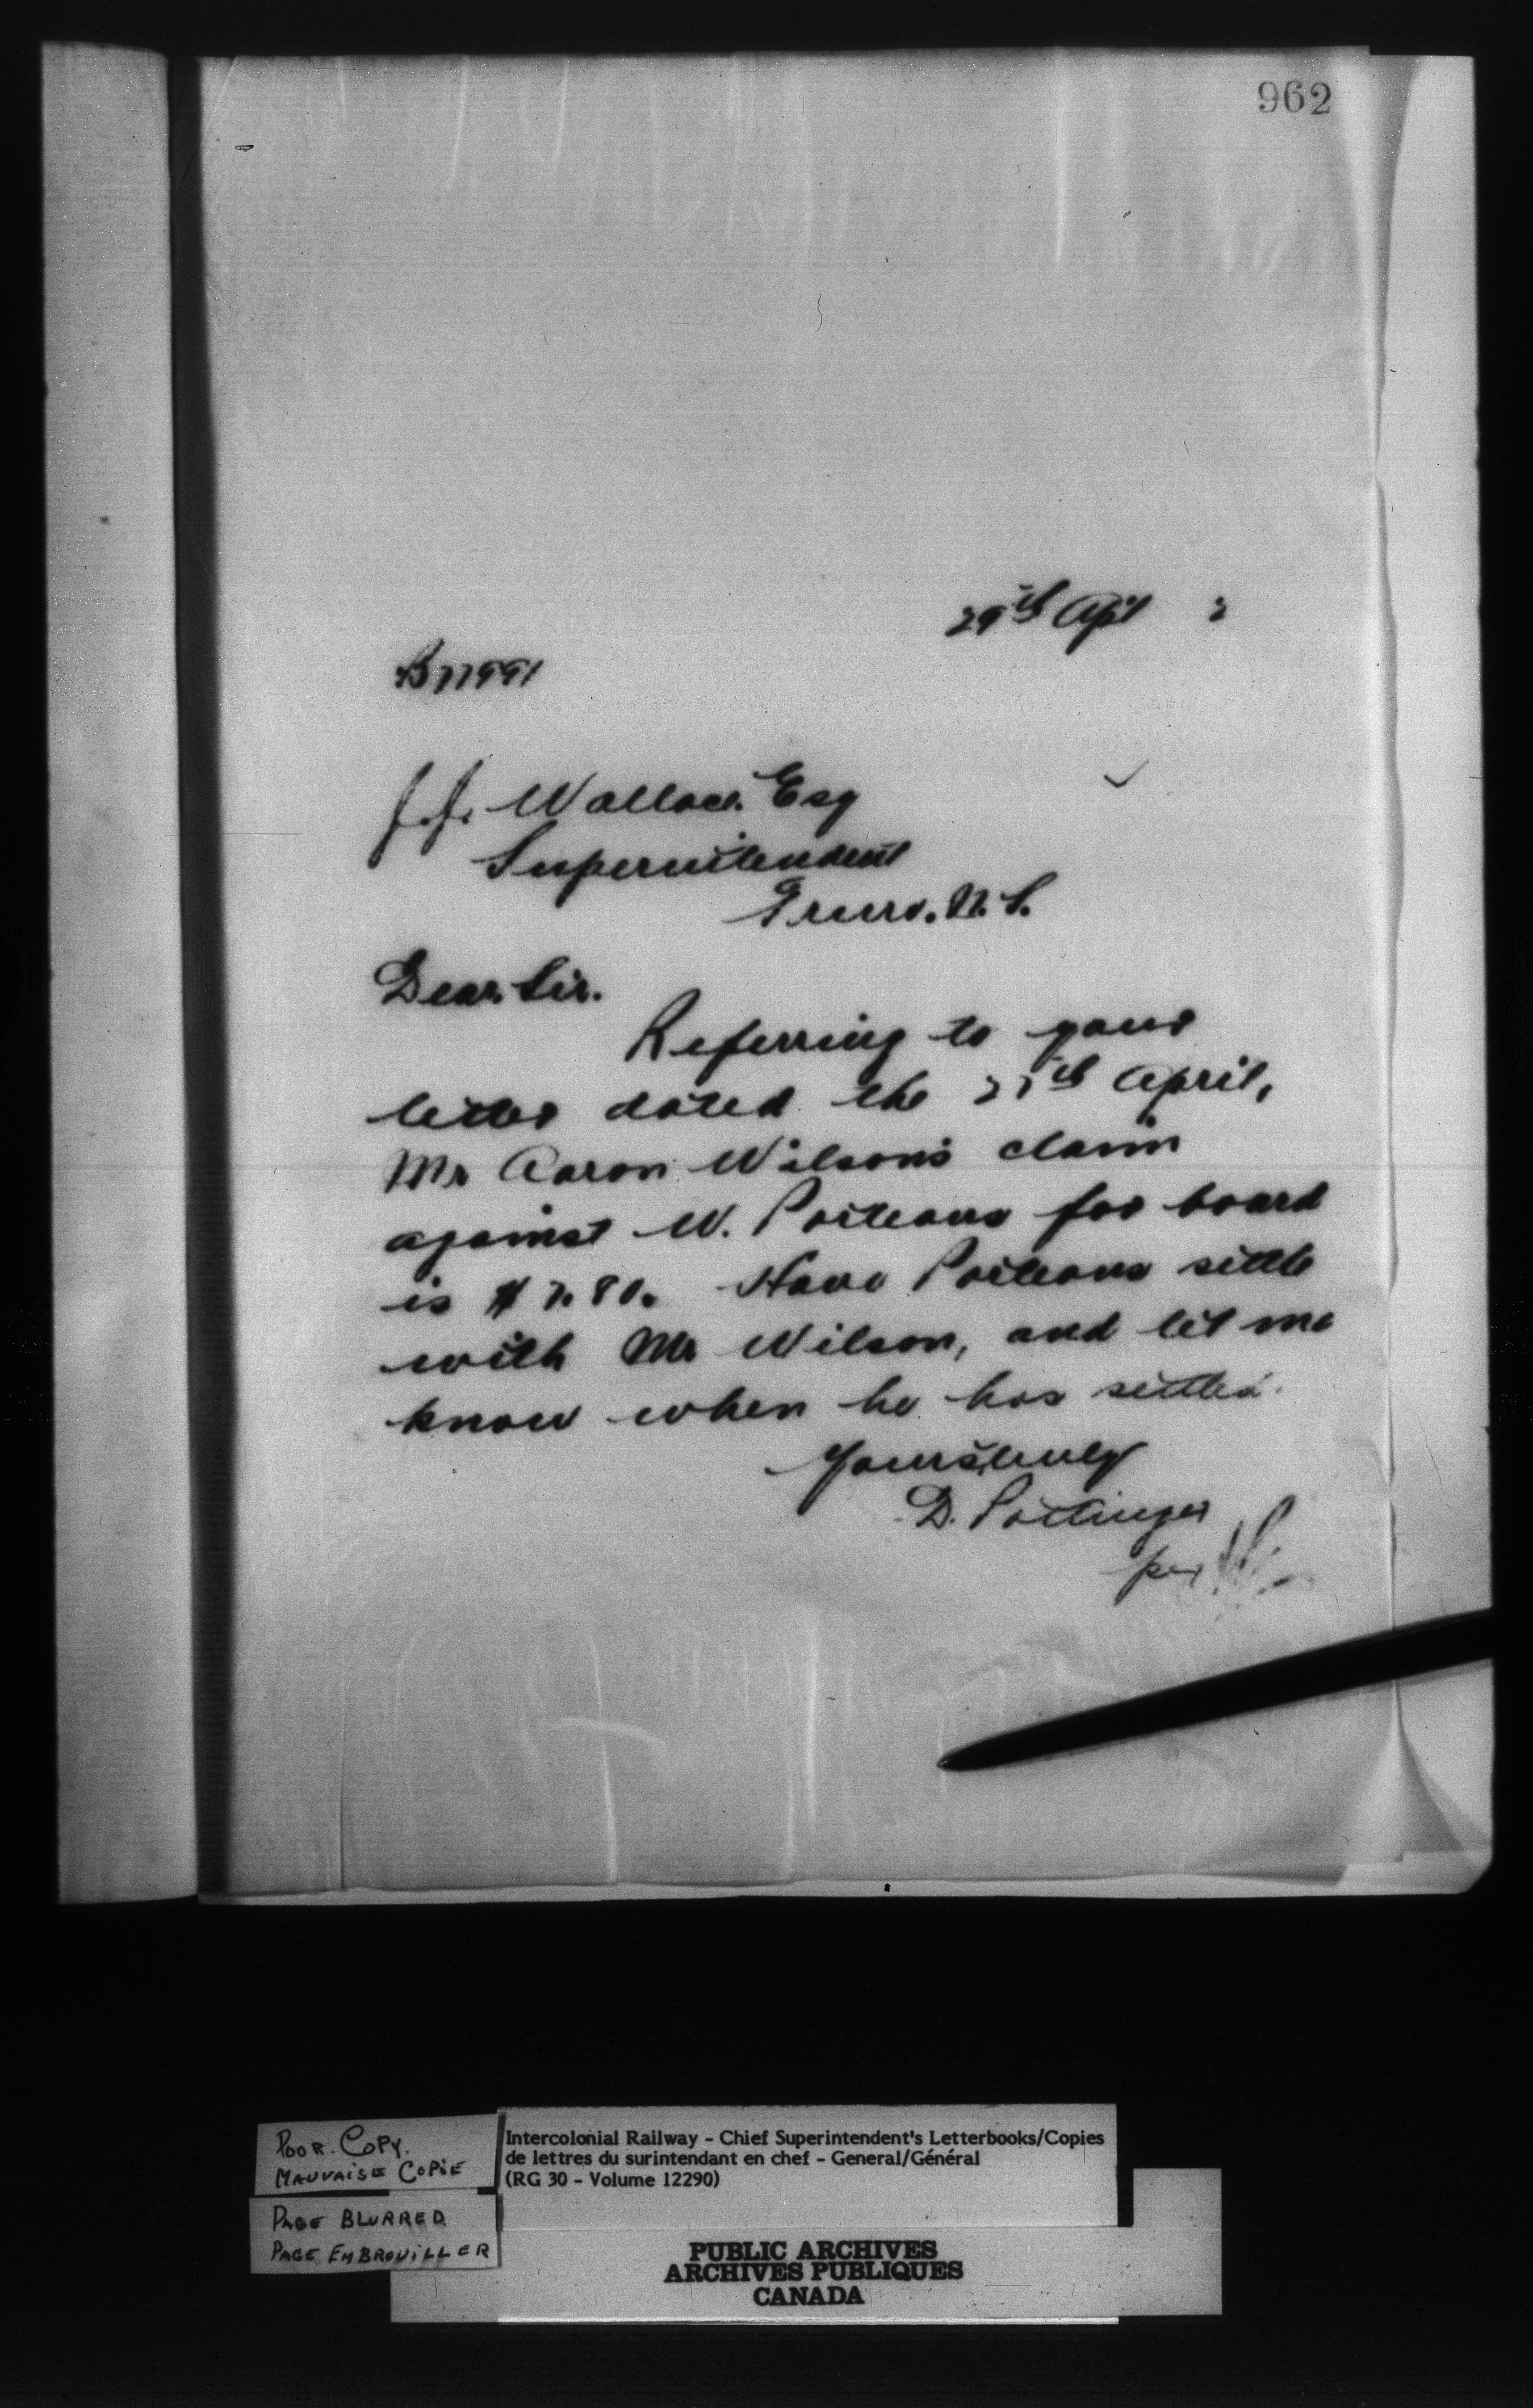 962
29th April 2
J.J. Wallace. Esq
Superintendent
Truro. N.S.
Dear Sir.
Referring to your
letter dated the April,
Mr Aaron Wilson's claim
against W. Porteous for board
is Have Porteous settle
with Mr Wilson, and let me
know when he has settled.
Yours truly
D. Pottinger
per
POOR. COPY.
MAUVAISE COPIE
PAGE BLURRED
PAGE EMBROUILLER
Intercolonial Railway - Chief Superintendent's Letterbooks/Copies
de lettres du surintendant en chef - General/Général
(RG 30 - Volume 12290)
PUBLIC ARCHIVES
ARCHIVES PUBLIQUES
CANADA